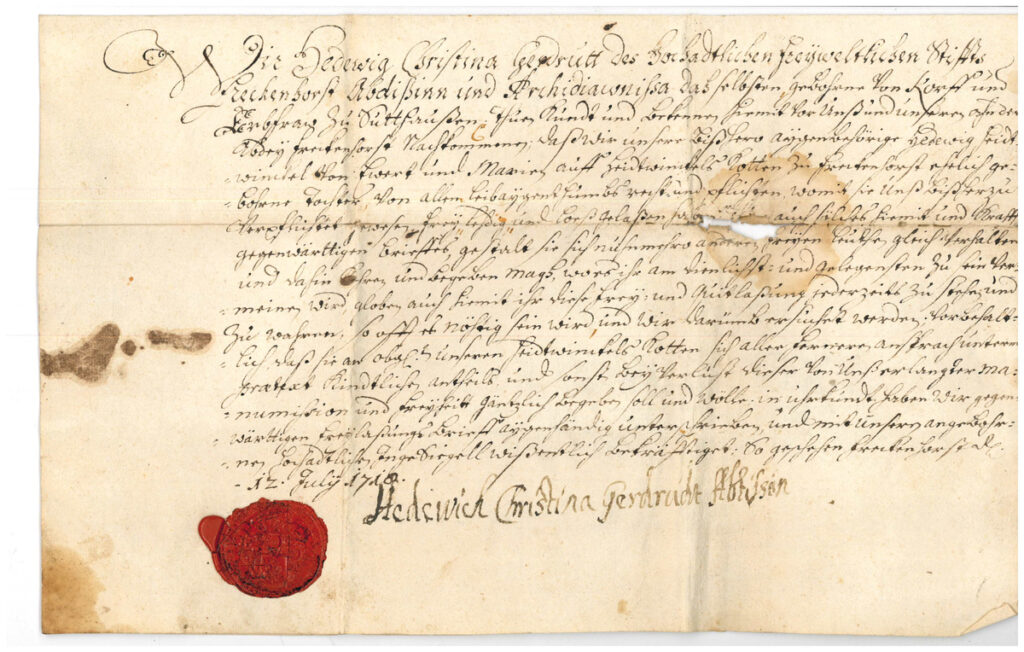 Wir Hedewig Christina Gerdrutt des Hochadtlichen freyweltlichen Stiffts
freckenhorst Abdißinn und Archidiaconissa daßelbsten, gebohrne Von Korff und
Erbfraw Zu Sutthaußen, Thuen Kundt und bekennen hiemit vor Unß und unseren ahn der
Abdey freckenhorst Nachkommen, daß wir unsere bißhero aygenbehörige Hedewig Zeidt-
-winckel von Ewert und Marien auff Zeidtwinckels Kotten Zu freckenhorst ehelich ge-
-bohrne Tochter, Von allem leibaygenthumbs recht und pflichten, womit sie Unß bißher zu
Verpflichtet gewesen, frey, ledig, und loeß gelaßen haben, auch solches hiemit und Krafft
gegenwärttigen brieffes, gestalt sie sich nuhnmehro anderen freyen leuthen gleich verhalten
und dahin kehren und begeben mag, wo es ihr am dienlichst- und gelegensten Zu sein ver-
meinen wird, globen auch hiemit ihr diese frey- und Außlaßung jederzeits Zu stehen und
Zu wahren, so offt es nöhtig sein wird, und wir darumb ersuchet werden, Vorbehalt-
-lich, daß sie an obgl. unseren Zeidtwinckels Kotten sich aller ferneren ansprach unterm
prætext Kindtlichen antheils, und sonst bey verlust dieser von Unß erlangter ma-
-numission und freyheitt gäntzlich begeben soll und wolle, in uhrkundt haben wir gegen-
wärttigen freylaßungs brieff aygenhändig unterschrieben, und mit unserm angebohr-
-nen hochadtlichen IngeSiegell wißentlich bekräfftiget; So geschehen freckenhorst d.
12. July 1718.
Hedewich Christina Gerdrudt Abtissin